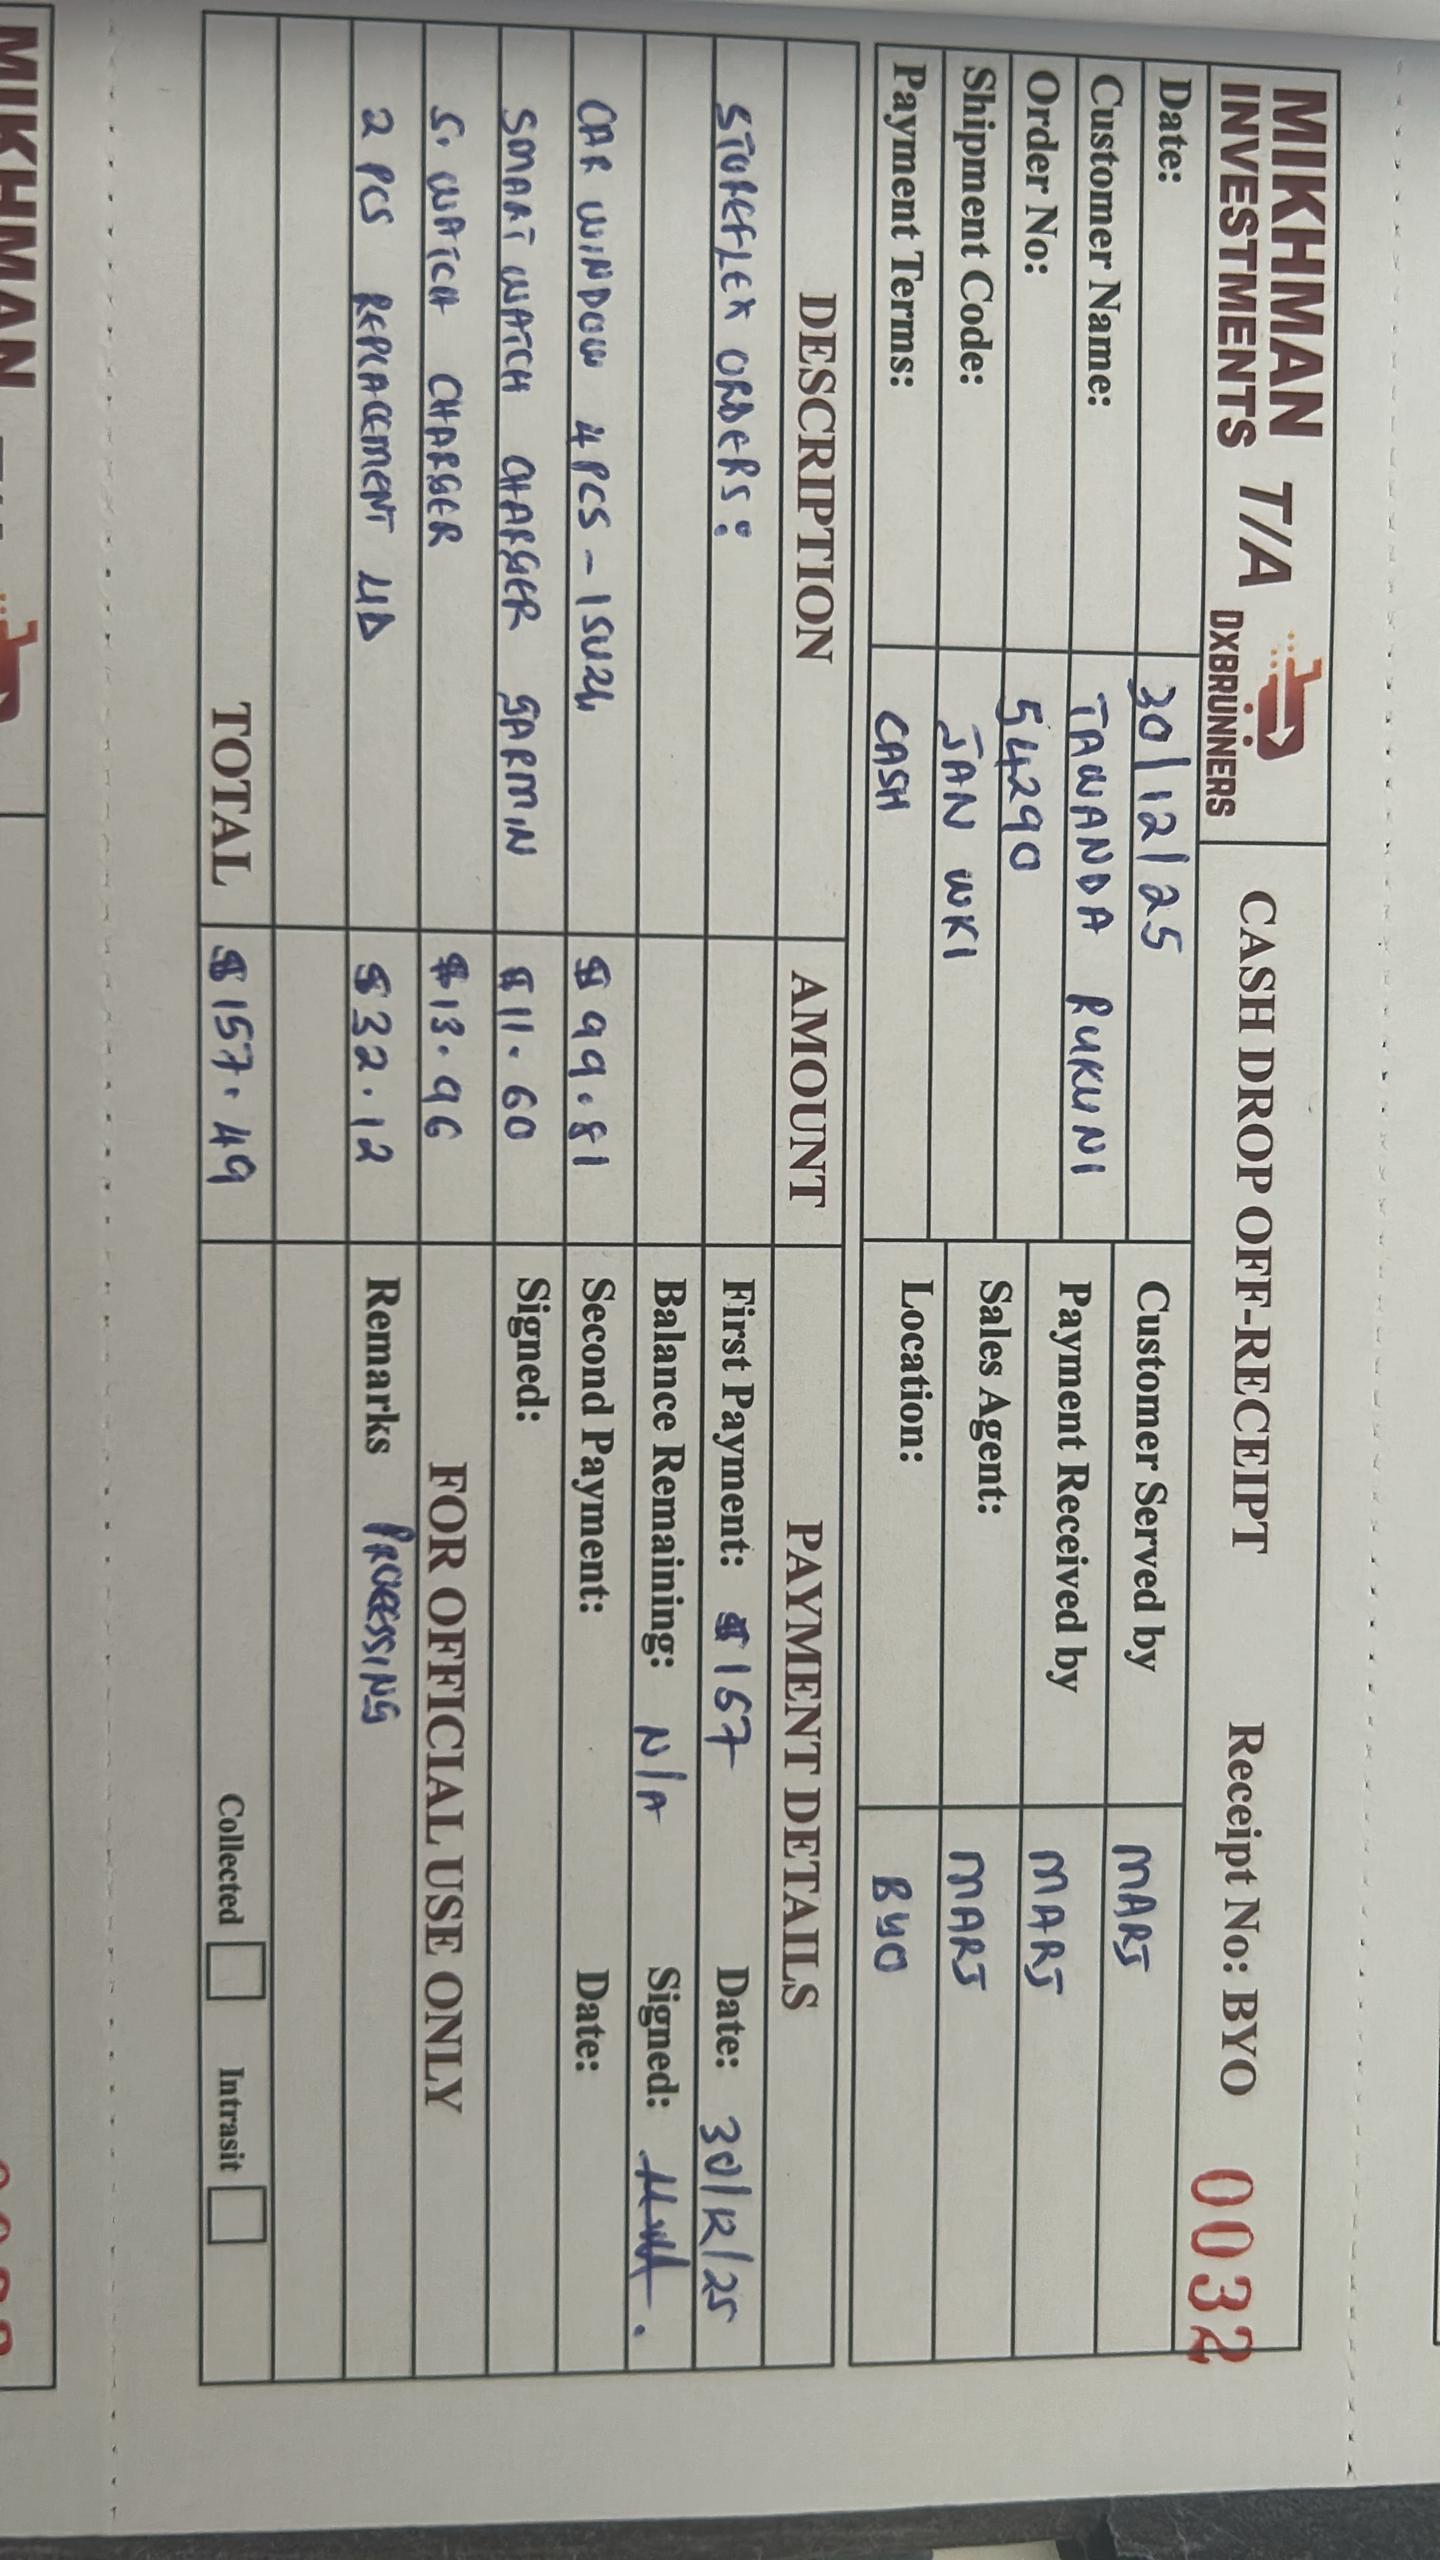 MIKHMAN T/A
INVESTMENTS DXBRUNNERS
CASH DROP OFF-RECEIPT Receipt No: BYO 0032
Date: 30/12/25
Customer Name: TAWANDA RUKUNI
Order No: 54290
Shipment Code: JAN WK1
Payment Terms: CASH
Customer Served by MARJ
Payment Received by MARJ
Sales Agent: MARJ
Location: BYO
DESCRIPTION AMOUNT PAYMENT DETAILS
STOREFLEX ORDERS: First Payment: $157 Date: 30/12/25
Balance Remaining: N/A Signed:
CAR WINDOW 4PCS - ISUZU $99.81 Second Payment: Date:
SMART WATCH CHARGER GARMIN $11.60 Signed:
S. WATCH CHARGER $13.96 FOR OFFICIAL USE ONLY
2 PCS REPLACEMENT LID $32.12 Remarks PROCESSING
TOTAL $157.49 Collected Intrasit
MIKHMAN